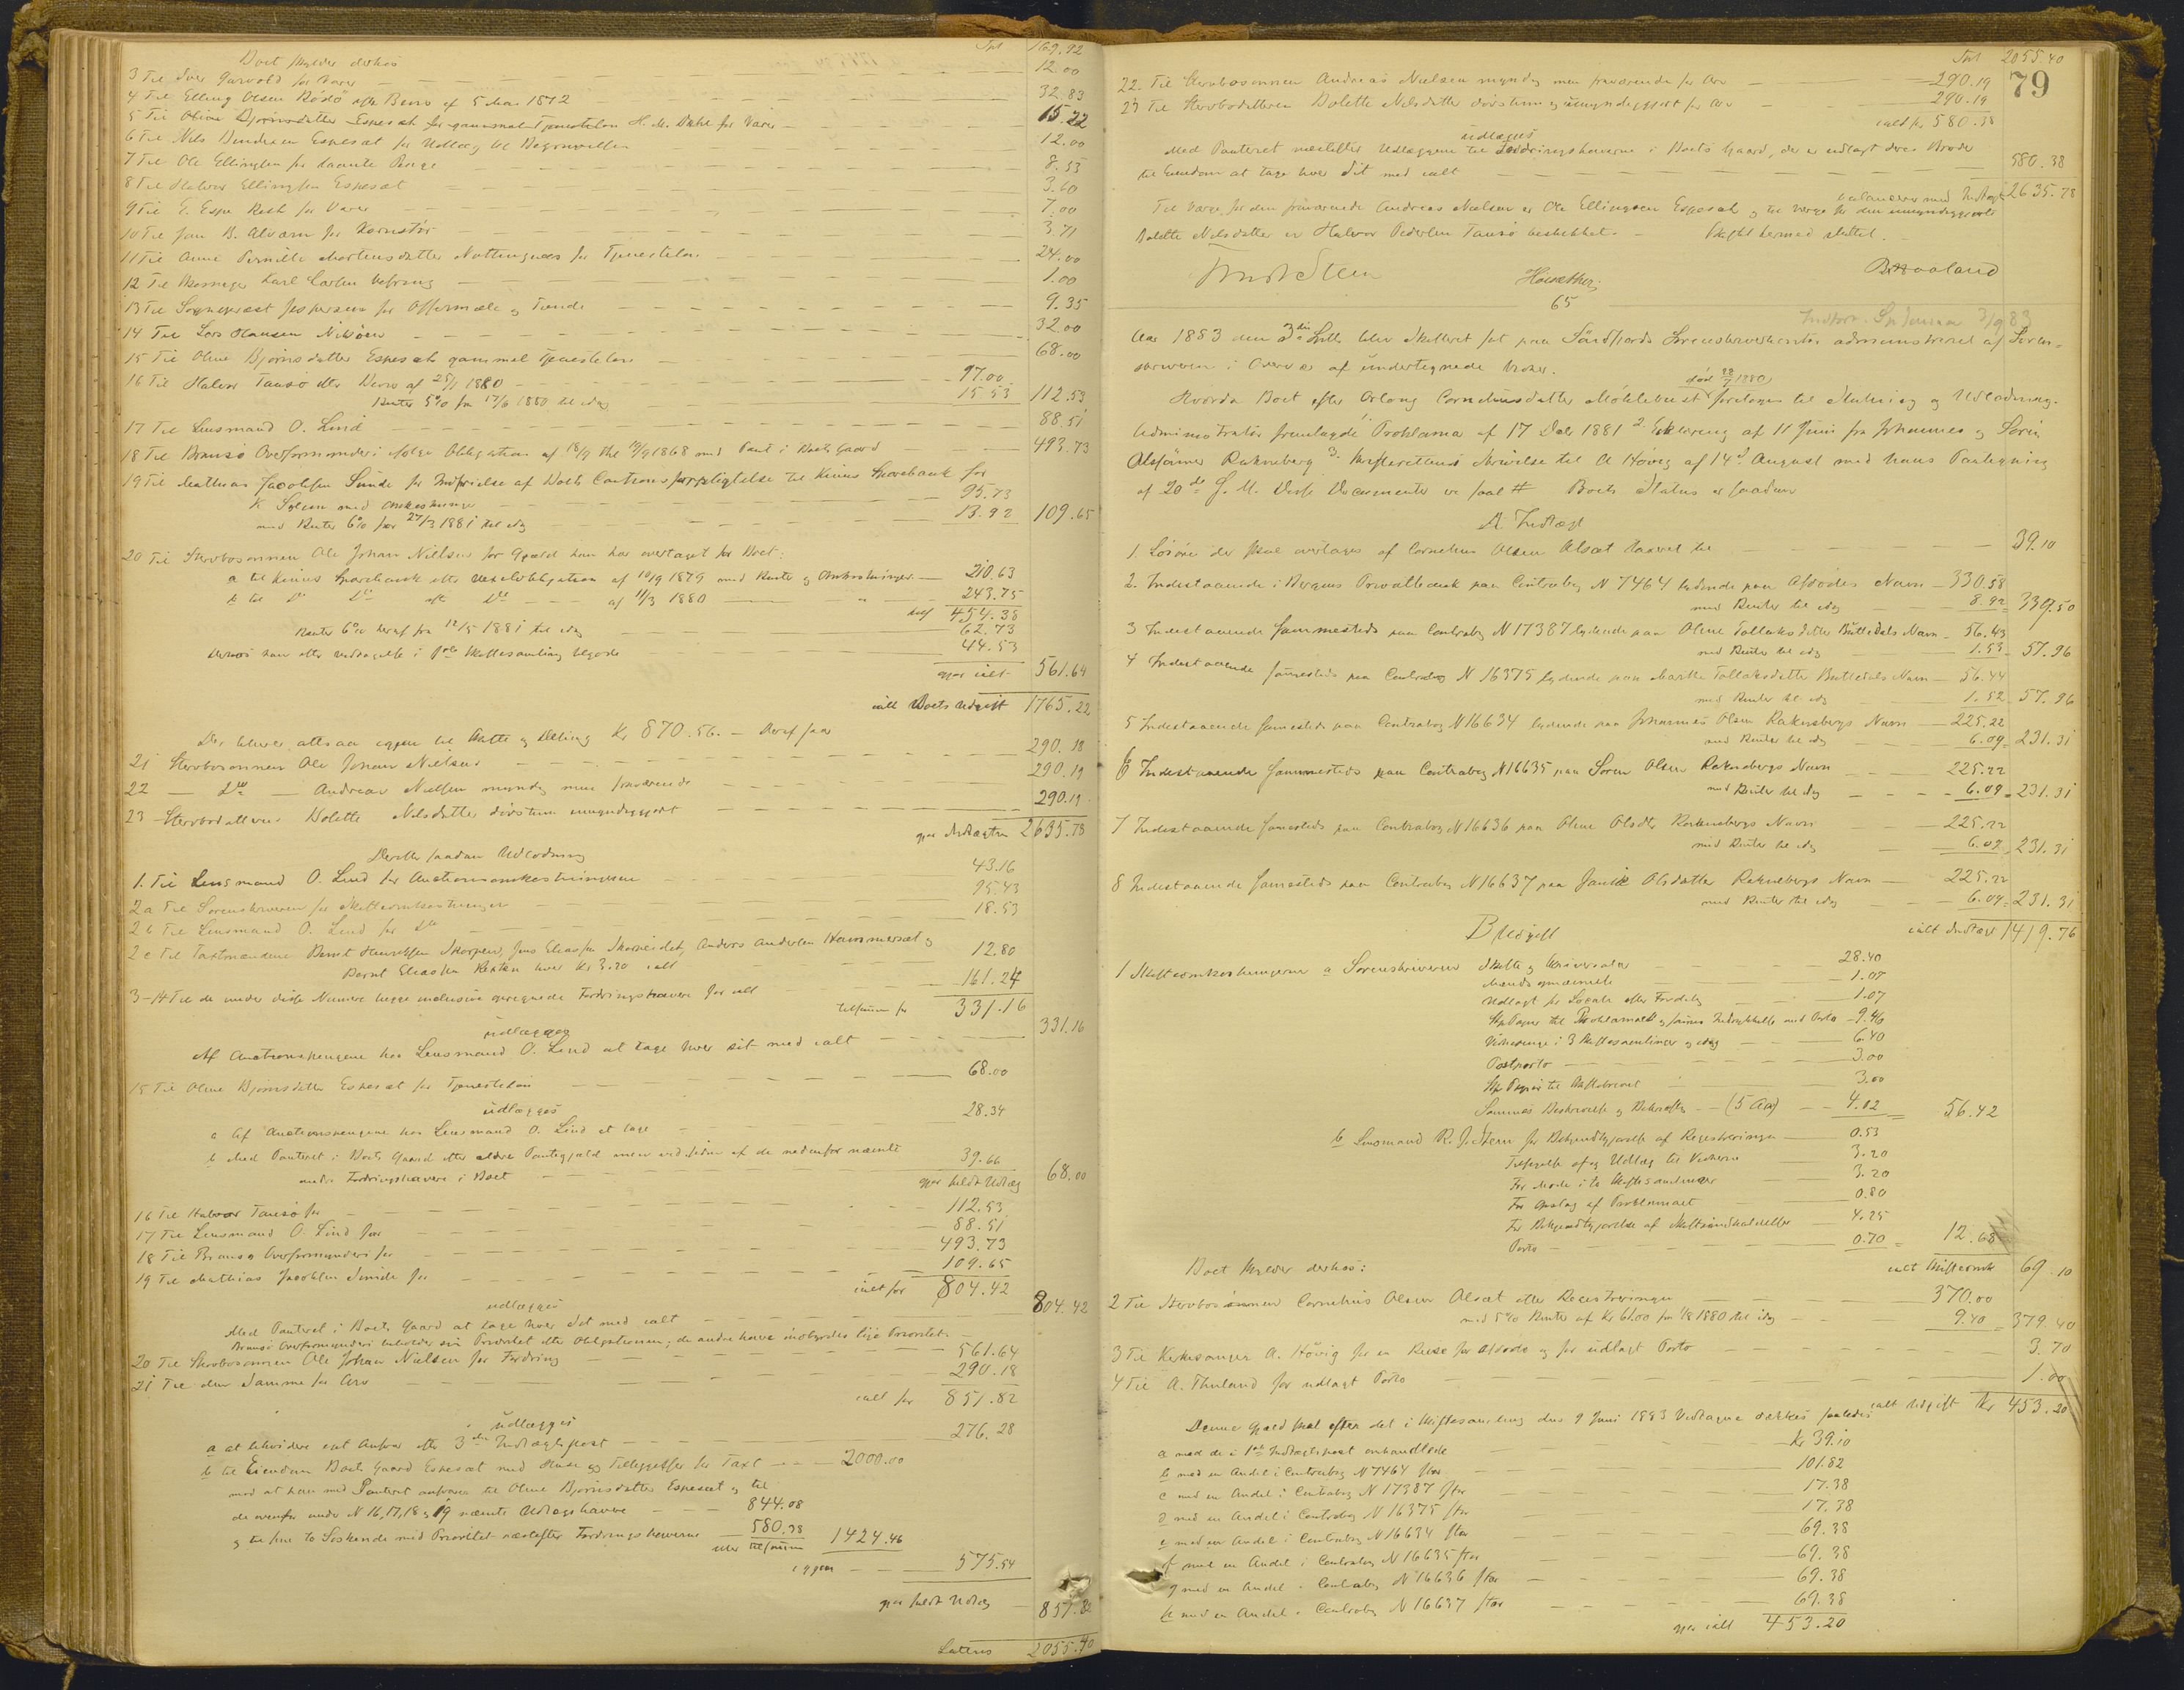 Tpt 169.92
Boet skylder derhos
3 Til Iver Garvold for Varer 12.00
4 Til Elling Olsen Rödö efter Bevis af 5 Mai 1872 32.83
5 Til H. M. Dahl for Varer 15.22
6 Til Nils Bendixen Espesæt for Udlæg til Begravelsen 12.00
7 Til Ole Ellingsen for laante Penge 8.53
8 Til Halvor Ellingsen Espesæt 3.60
9 Til E. Espe Rest for Varer 7.00
10 Til Jon B. Alværn for 3.71
11 Til Anne Pernille Mortensdatter for Tjenestelön 24.00
12 Til Karl Carlsen 1.00
13 Til Sognepræst Jespersen for Offermæle og Tiende 9.35
14 Til Lars Hansen 32.00
15 Til Oline Bjørnsdatter Espesæt gammel Tjenestelön 68.00
16 Til Halvor Tansø efter Bevis af 25/1 1880 97.00
Renter 5% fra 17/6 1880 til idag 15.53 112.53
17 Til Lensmand O. Lind 88.51
18 Til Bremanger Overformynderi ifølge Obligation af 18/9 thl 19/9 1868 med Pant i Boets Gaard 493.73
19 Til Mathias Jacobsen Sunde for Indfrielse af Boets Cautionsforpligtelse til Kinns Sparebank for
K. Solem med Omkostninger 95.73
med Renter 6% fra 27/3 1881 til idag 13.92 109.65
20 Til Stervbosønnen Ole Johan Nielsen for Gjæld han har overtaget for Boet:
a til Kinns Sparebank efter Vexelobligation af 10/9 1879 med Renter og Omkostninger 210.63
b til Do Do efter Do af 11/3 1880 243.75
454.38
Renter 6% heraf fra 12/5 1881 til idag 62.73
derhos han efter Vedtagelse i Skiftesamling tilgode 44.53
gjør ialt 561.64
ialt Boets Udgift 1765.22
Der bliver altsaa igjen til Arv og Deling Kr 870.56. Deraf faar
21 Stervbosønnen Ole Johan Nielsen 290.18
22 — Do — Andreas Nielsen myndig men fraværende 290.19
23 Stervbodatteren Bolette Nilsdatter døvstum umyndiggjort 290.19
gjør Indtægten 2635.78
Derefter saadan Udlodning
1. Til Lensmand O. Lind for Auctionsomkostningerne 43.16
2a Til Sorenskriveren for Skifteomkostninger 95.43
2b Til Lensmand O. Lind for Do 18.53
2c Til Taxtmændene Bernt Henriksen Skorpen, Jens Eliassen Skorpeidet, Anders Andersen Hammersæt og
Bernt Eliassen hver Kr 3.20 ialt 12.80
3-14 Til de under disse Numere begge inclusive opregnede Fordringshavere for ialt 161.24
tilsammen for 331.16
udlægges
Af Auctionspengene hos Lensmand O. Lind at tage hver sit med ialt 331.16
15 Til Oline Bjørnsdatter Espesæt for Tjenestelön 68.00
udlægges
a Af Auctionspengene hos Lensmand O. Lind at tage 28.34
b Med Panteret i Boets Gaard efter ældre Pantegjæld men ved Siden af de nedenfor nævnte
andre Fordringshavere i Boet 39.66
gjør heldt Udlæg 68.00
16 Til Halvor Tansø for 112.53
17 Til Lensmand O. Lind for 88.51
18 Til Overformynderi for 493.73
19 Til Mathias Jacobsen Sunde for 109.65
ialt for 804.42
udlægges
Med Panteret i Boets Gaard at tage hver sit med ialt 804.42
Overformynderi beholder sin Prioritet efter Obligationen; de andre have indbyrdes lige Prioritet.
20 Til Stervbosønnen Ole Johan Nielsen for Fordring 561.64
21 Til den Samme for Arv 290.18
ialt for 851.82
udlægges
a at likvidere eget Ansvar efter 3die Indtægtspost 276.28
b til Eiendom Boets Gaard Espesæt med Huse og Tilleggelser for Taxt 2000.00
mod at han med Panteret ansvarer til Oline Bjørnsdatter Espesæt og til
de ovenfor under N 16, 17, 18 og 19 nævnte Udlægshavere 844.08
og til sine to Søskende med Prioritet næstefter Fordringshaverne 580.38
eller tilsammen 1424.46
igjen 575.54
gjør heldt Udlæg 851.82
Lateris 2055.40
79
Tpt 2055.40
22. Til Stervbosønnen Andreas Nielsen myndig men fraværende for Arv 290.19
23 Til Stervbodatteren Bolette Nilsdatter døvstum og umyndiggjort for Arv 290.19
ialt Kr 580.38
udlægges
Med Panteret næstefter Udlæggene til Fordringshaverne i Boets Gaard, der er udlagt deres Broder
til Eiendom at tage hver sit med ialt 580.38
balancerer med Indtægt 2635.78
Til Værge for den fraværende Andreas Nielsen er Ole Ellingsen Espesæt og til Værge for den umyndiggjorte
Bolette Nilsdatter er Halvor Pedersen Tansø beskikket. — Skiftet hermed sluttet.
65
3/9 83
Aar 1883 den 3die Juli blev Skifteret sat paa Söndfjords Sorenskriverkontor administreret af Soren-
skriveren i Overvær af undertegnede Vidner.
død 28/7 1880
Hvorda Boet efter Orlong Corneliusdatter Möhlebust foretages til Slutning og Udlodning.
Administrator fremlagde 1. Proklama af 17 Debr 1881 2. Erklæring af 11 Juni fra Johannes og Sören
Olsønner Raknæberg 3. Skifterettens Skrivelse til A Hövig af 14de August med hans Paategning
af 20de s. M. Disse Documenter er saal # Boets Status er saadan
A. Indtægt
1 Løsøre der skal overtages af Cornelius Olsen Alsæt taxeret til 39.10
2. Indestaaende i Bergens Privatbank paa Contrabog N 7464 lydende paa Afdødes Navn 330.58
med Renter til idag 8.92 339.50
3 Indestaaende sammesteds paa Contrabog N 17387 lydende paa Oline Tollaksdatter Buttedals Navn 56.43
med Renter til idag 1.53 57.96
4 Indestaaende sammesteds paa Contrabog N 16375 lydende paa Marthe Tollaksdatter Buttedals Navn 56.44
med Renter til idag 1.52 57.96
5 Indestaaende sammesteds paa Contrabog N 16634 lydende paa Johannes Olsen Raknebergs Navn 225.22
med Renter til idag 6.09 231.31
6 Indestaaende sammesteds paa Contrabog N 16635 paa Soren Olsen Raknebergs Navn 225.22
med Renter til idag 6.09 231.31
7 Indestaaende sammesteds paa Contrabog N 16636 paa Oline Olsdtr Raknebergs Navn 225.22
med Renter til idag 6.09 231.31
8 Indestaaende sammesteds paa Contrabog N 16637 paa Olsdatter Raknebergs Navn 225.22
med Renter til idag 6.09 231.31
ialt Indtægt 1419.76
B Udgift
1 Skifteomkostningerne a Sorenskriveren Skifte og Skriversalær 28.40
Mænds opnævnelse 1.07
Udlagt for Locale efter Fordeling 1.07
Stp Papir til Proklamaet og sammes Indrykkelse med Porto 9.46
Vidnepenge i 3 Skiftesamlinger og idag 6.40
Postporto 3.00
Stp Papir til Skiftebrevet 3.00
Sammes Beskrivelse og Bekræftelse (5 Ark) 4.02 = 56.42
b Lensmand R. J. Stern for Bekjendtgjørelse af Registreringen 0.53
Tilsigelse af og Udlæg til Vidnerne 3.20
For Møde i to Skiftesamlinger 3.20
For Opslag af Proklamaet 0.80
For Bekjendtgjørelse af Skifteindkaldelser 4.25
Porto 0.70 = 12.68
ialt Skifteomk 69.10
Boet skylder derhos:
2 Til Stervbosønnen Cornelius Olsen Alsæt efter Registreringen 370.00
med 5% Renter af Kr 61.00 fra 1880 til idag 9.40 379.40
3 Til Kirkesanger A. Hövig for en Reise for Afdøde og for udlagt Porto 3.70
4 Til A. Thuland for udlagt Porto 1.00
ialt Udgift Kr 453.20
Denne Gjæld skal efter det i Skiftesamling den 9 Juni 1883 Vedtagne dækkes saaledes
a med de i 1ste Indtægtspost omhandlede Kr 39.10
b med en Andel i Contrabog N 7464 stor 101.82
c med en Andel i Contrabog N 17387 stor 17.38
d med en Andel i Contrabog N 16375 stor 17.38
e med en Andel i Contrabog N 16634 stor 69.38
f med en Andel i Contrabog N 16635 stor 69.38
g med en Andel i Contrabog N 16636 stor 69.38
h med en Andel i Contrabog N 16637 stor 69.38
gjør ialt 453.20